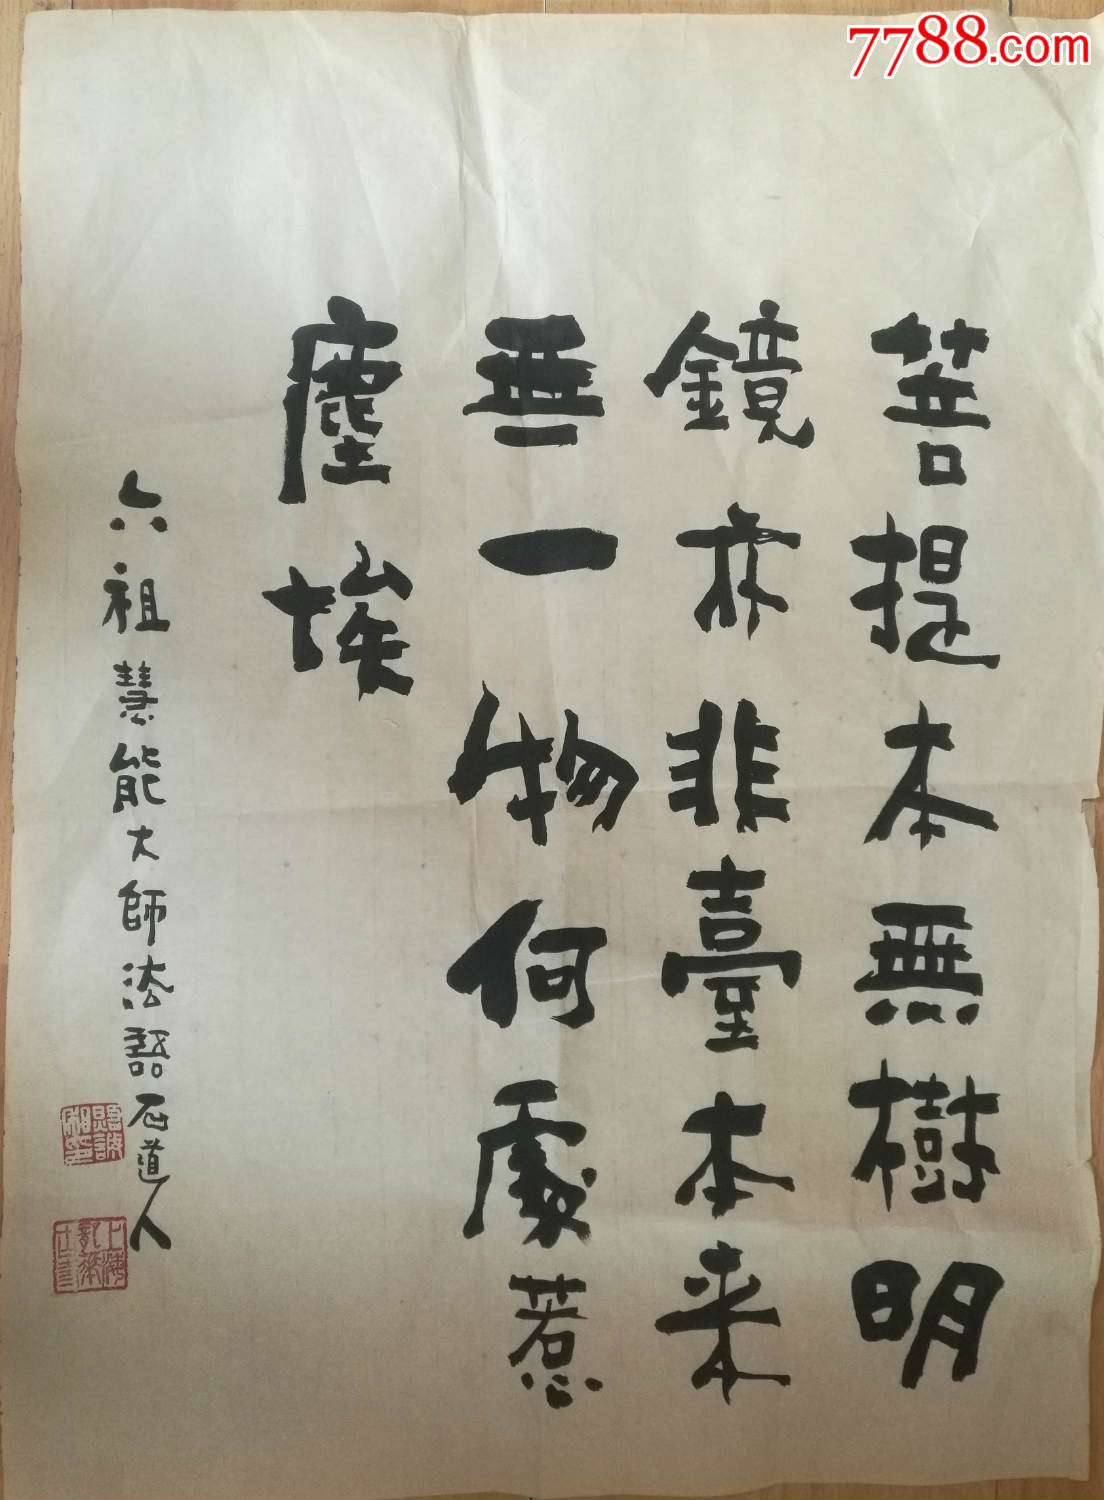 菩提本無樹明
鏡亦非臺本来
無一物何處惹
塵埃
六祖慧能大師法語石道人
7788.com